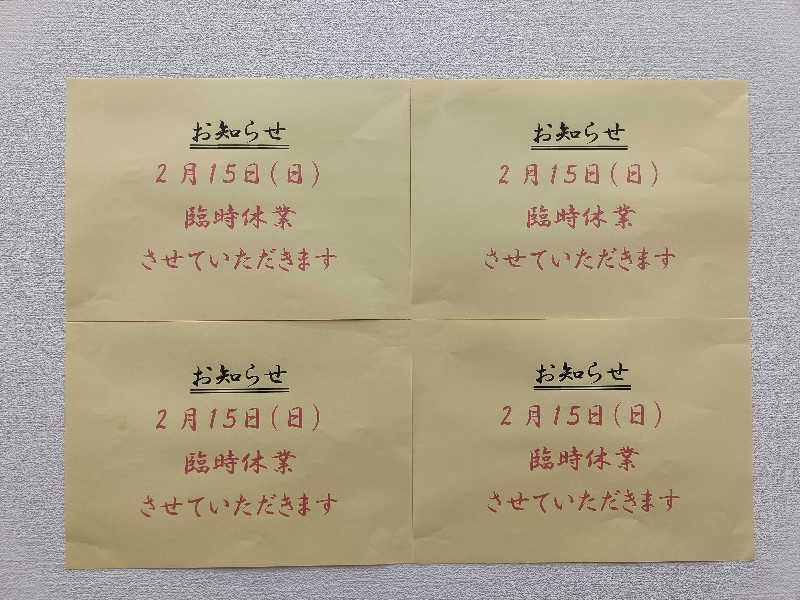 お知らせ
2月15日(日)
臨時休業
させていただきます
お知らせ
2月15日(日)
臨時休業
させていただきます
お知らせ
2月15日(日)
臨時休業
させていただきます
お知らせ
2月15日(日)
臨時休業
させていただきます